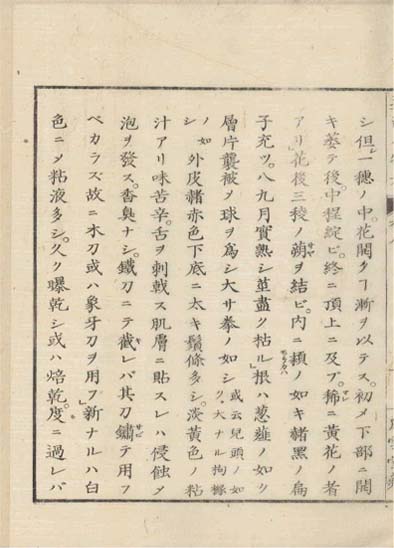 シ但一穂ノ中。花開クヿ漸ヲ以テス。初メ下部ニ開
キ萎テ後。中程綻ビ。終ニ頂上ニ及ブ。稀ニ黄花ノ者
アリ」花後三稜ノ蒴ヲ結ビ。内ニノ如キ赭黒ノ扁
子充ツ。八九月實熟シ莖盡ク枯ル」根ハ葱薤ノ如ク
層片襲被ノ球ヲ爲シ大サ拳ノ如シ 或云兒頭ノ如ク。大ナル拘櫞
ノ如シ 外皮赭赤色下底ニ太キ鬚條多シ。淡黄色ノ粘
汁アリ味苦辛。舌ヲ刺戟ス肌膚ニ貼スレハ侵蝕シ
泡ヲ發ス。香臭ナシ。鐵刀ニテ截レバ其刀鏽テ用フ
ベカラズ。故ニ木刀或ハ象牙刀ヲ用フ」新ナルハ白
色ニメ粘液多シ。久ク曝乾シ或ハ焙乾。度ニ過レバ